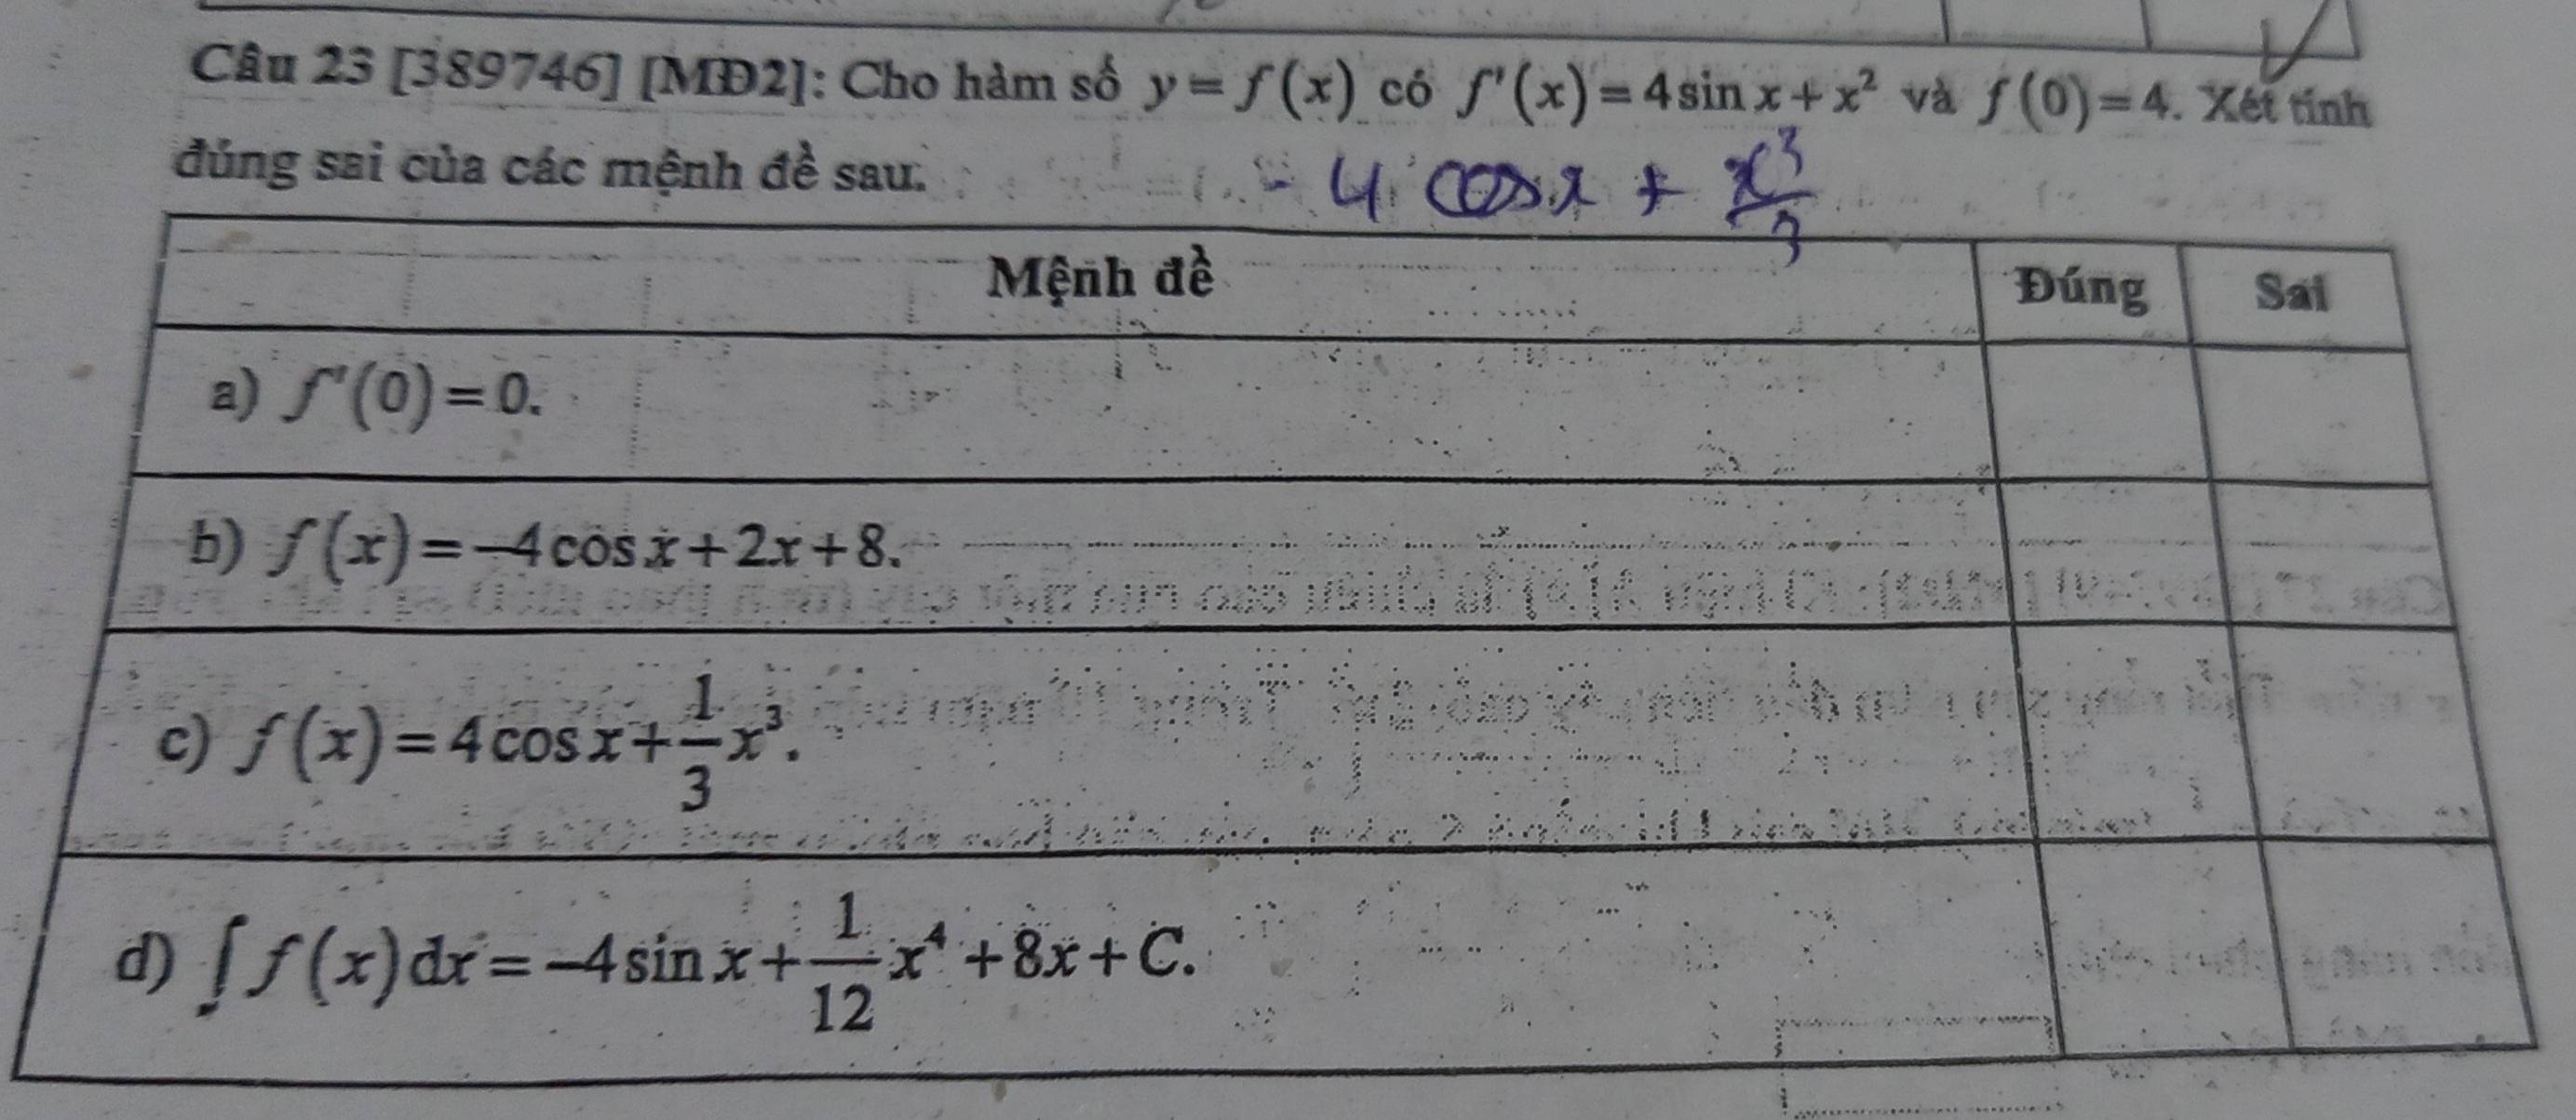 Câu 23 [389746] [MĐ2]: Cho hàm số y = f(x) có f'(x) = 4sin x + x² và f(0) = 4. Xét tính
đúng sai của các mệnh đề sau.
- 4 cosx + x³/3
Mệnh đề Đúng Sai
a) f'(0) = 0.
b) f(x) = –4cos x + 2x + 8.
c) f(x) = 4cos x + 1/3 x³.
d) ∫ f(x)dx = –4sin x + 1/12 x⁴ + 8x + C.